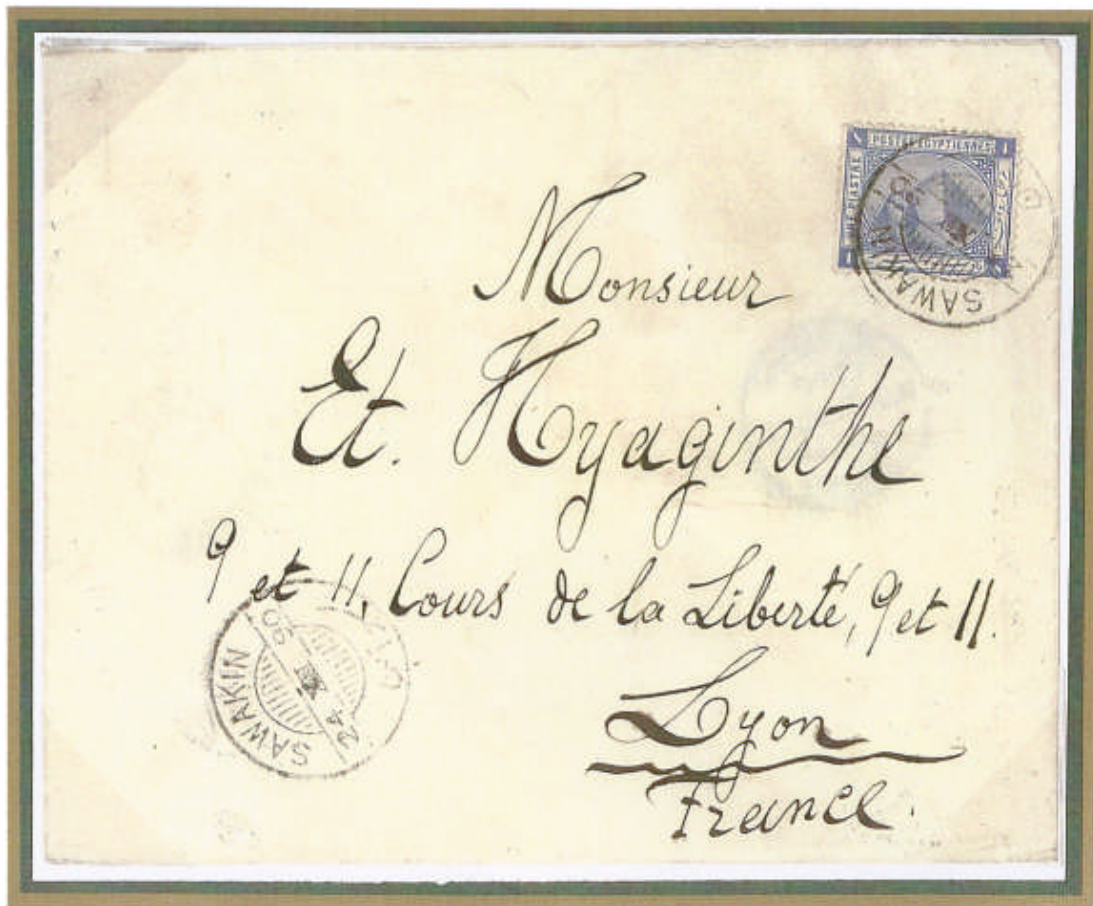 POSTES EGYPTIENNES
UNE PIASTRE
SAWAKIN
Monsieur
Et. Hyaginthe
9 et 11, Cours de la Liberté, 9 et 11.
Lyon
France.
SAWAKIN
24 XI 90